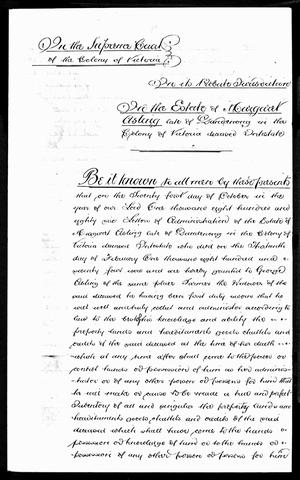 In the Supreme Court
of the Colony of Victoria
In its Probate Jurisdiction
In the Estate of Margaret
Asling late of Dandenong in the
Colony of Victoria deceased Intestate
Be it known to all men by these presents
that on the Twenty first day of October in the
year of our Lord One thousand eight hundred and
eighty one Letters of Administration of the Estate of
Margaret Asling late of Dandenong in the Colony of
Victoria deceased Intestate who died on the Thirteenth
day of February One thousand eight hundred and
seventy four was and are hereby granted to George
Asling of the same place Farmer the Widower of the
said deceased he having been first duly sworn that he
will well and truly collect and administer according to
law to the best of his knowledge and ability the
property lands and hereditaments goods chattels and
credits of the said deceased at the time of her death
which at any time after shall come to the possession or
control hands or possession of him as her adminis-
trator or of any other person or persons for him that
he will make or cause to be made a true and perfect
Inventory of all and singular the property lands and
hereditaments goods chattels and credits of the said
deceased which shall have come to the hands
possession or knowledge of him or to the hands or
possession of any other person or persons for him